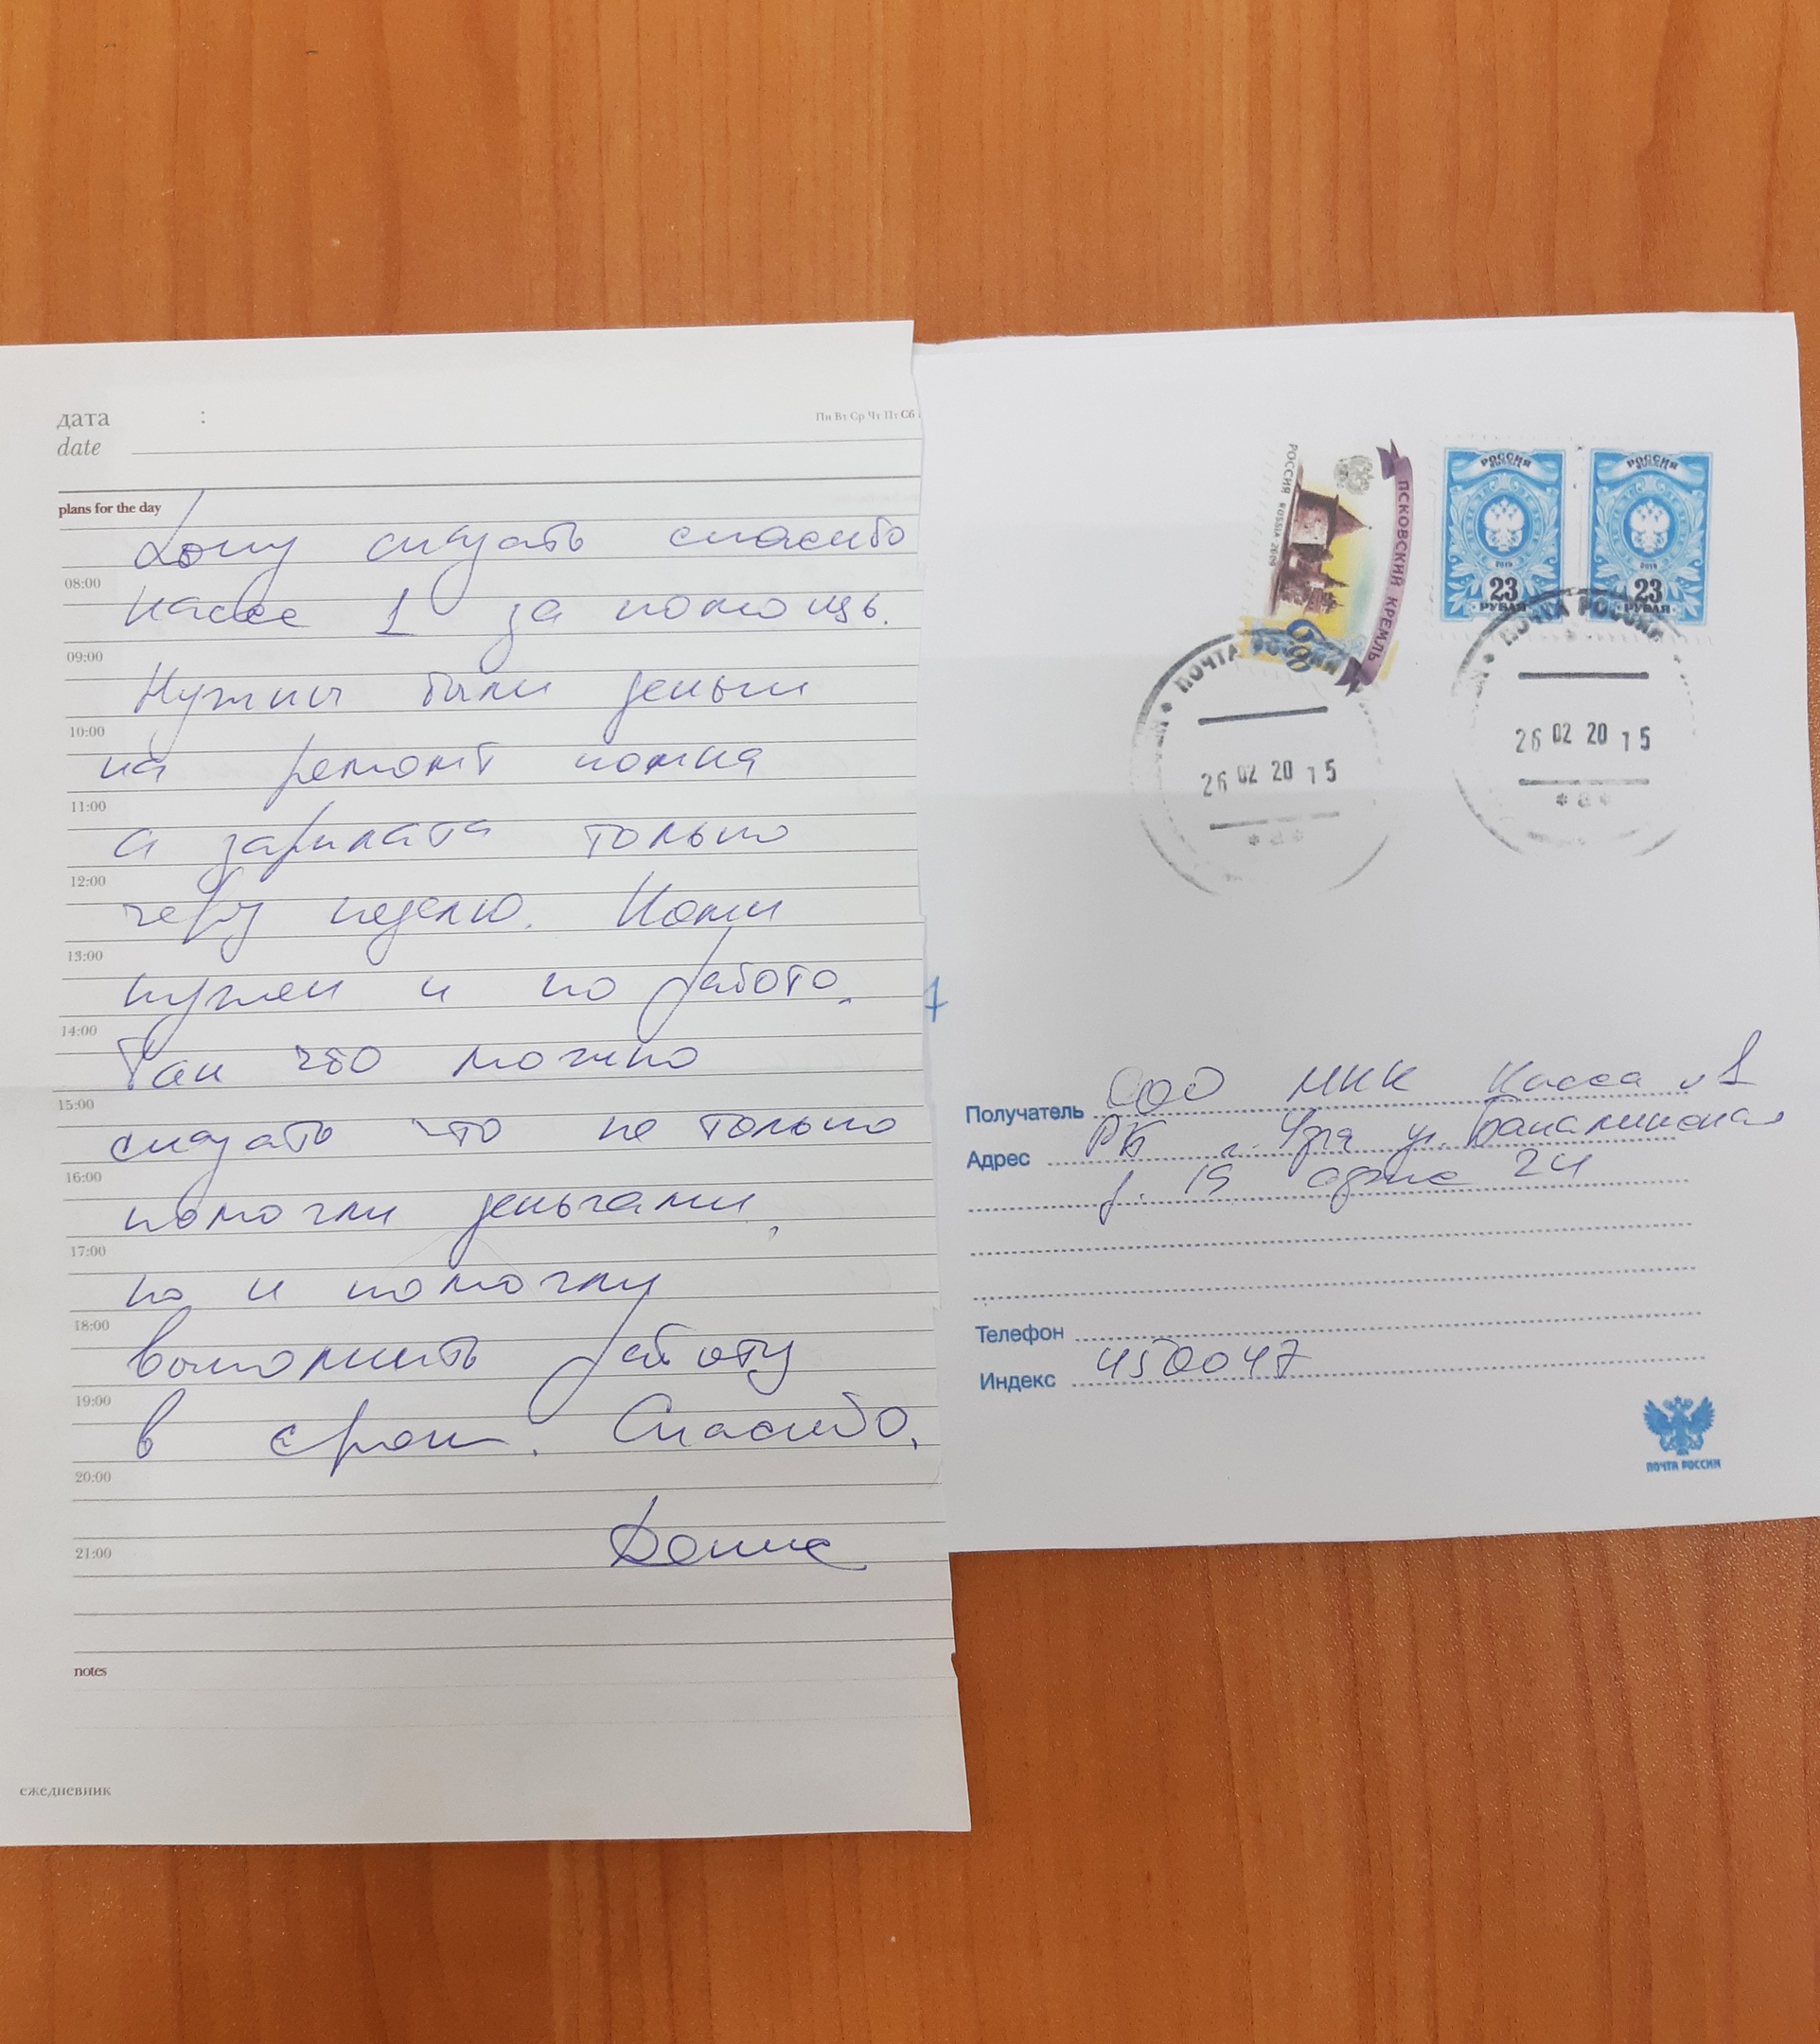 дата :
date
Пн Вт Ср Чт Пт Сб
plans for the day
Хочу сказать спасибо
08:00
Кассе 1 за помощь.
09:00
Нужны были деньги
10:00
на ремонт компа
11:00
а зарплата только
12:00
через неделю. Комп
13:00
нужен и по работе.
14:00
Так что можно
15:00
сказать что не только
16:00
помогли деньгами,
17:00
но и помогли
18:00
выполнить работу
19:00
в срок. Спасибо.
20:00
Денис
21:00
notes
ежедневник
РОССИЯ RUSSIA 2009
ПСКОВСКИЙ КРЕМЛЬ
РОССИЯ
RUSSIA
2019
23
РУБЛЯ
РОССИЯ
RUSSIA
2019
23
РУБЛЯ
ПОЧТА РОССИИ
26 02 20 15
ПОЧТА РОССИИ
26 02 20 15
Получатель ООО МКК Касса №1
Адрес РБ г. Уфа ул. Бакалинская
д. 19 офис 24
Телефон
Индекс 450047
ПОЧТА РОССИИ